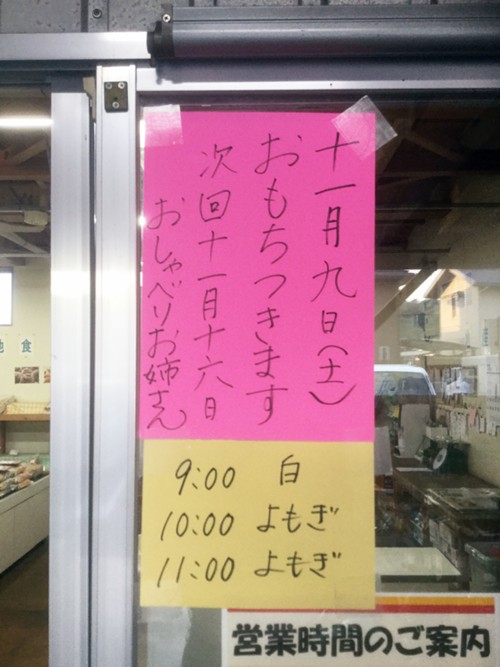 十一月九日(土)
おもちつきます
次回十一月十六日
おしゃべりお姉さん
9:00 白
10:00 よもぎ
11:00 よもぎ
営業時間のご案内
食